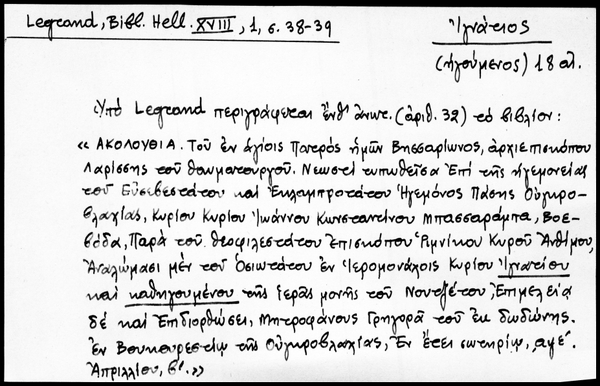 Legrand, Bibl. Hell. XVIII, 1, σ. 38-39
Ἰγνάτιος
(ἡγούμενος) 18 αι.
Ὑπό Legrand περιγράφεται ἔνθ' ἀνωτ. (ἀριθ. 32) τό βιβλίον:
« ΑΚΟΛΟΥΘΙΑ. Τοῦ ἐν ἁγίοις Πατρός ἡμῶν Βησσαρίωνος, ἀρχιεπισκόπου
Λαρίσσης τοῦ θαυματουργοῦ. Νεωστί τυπωθεῖσα Ἐπί τῆς ἡγεμονείας
τοῦ Εὐσεβεστάτου καί Ἐκλαμπροτάτου Ἡγεμόνος Πάσης Οὐγκρο-
βλαχίας, Κυρίου Κυρίου Ἰωάννου Κωνσταντίνου Μπασσαράμπα, Βοε-
βόδα, Παρά τοῦ θεοφιλεστάτου Ἐπισκόπου Ῥιμνίκου Κυροῦ Ἀνθίμου,
Ἀναλώμασι μέν τοῦ Ὁσιωτάτου ἐν Ἱερομονάχοις Κυρίου Ἰγνατίου
καί καθηγουμένου τῆς ἱερᾶς μονῆς τοῦ Νουτζέτου, Ἐπιμελείᾳ
δέ καί Ἐπιδιορθώσει, Μητροφάνους Γρηγορᾶ τοῦ ἐκ Δωδώνης.
Ἐν Βουκουρεστίῳ τῆς Οὐγκροβλαχίας, Ἐν ἔτει σωτηρίῳ, αψε΄.
Ἀπριλλίου, »